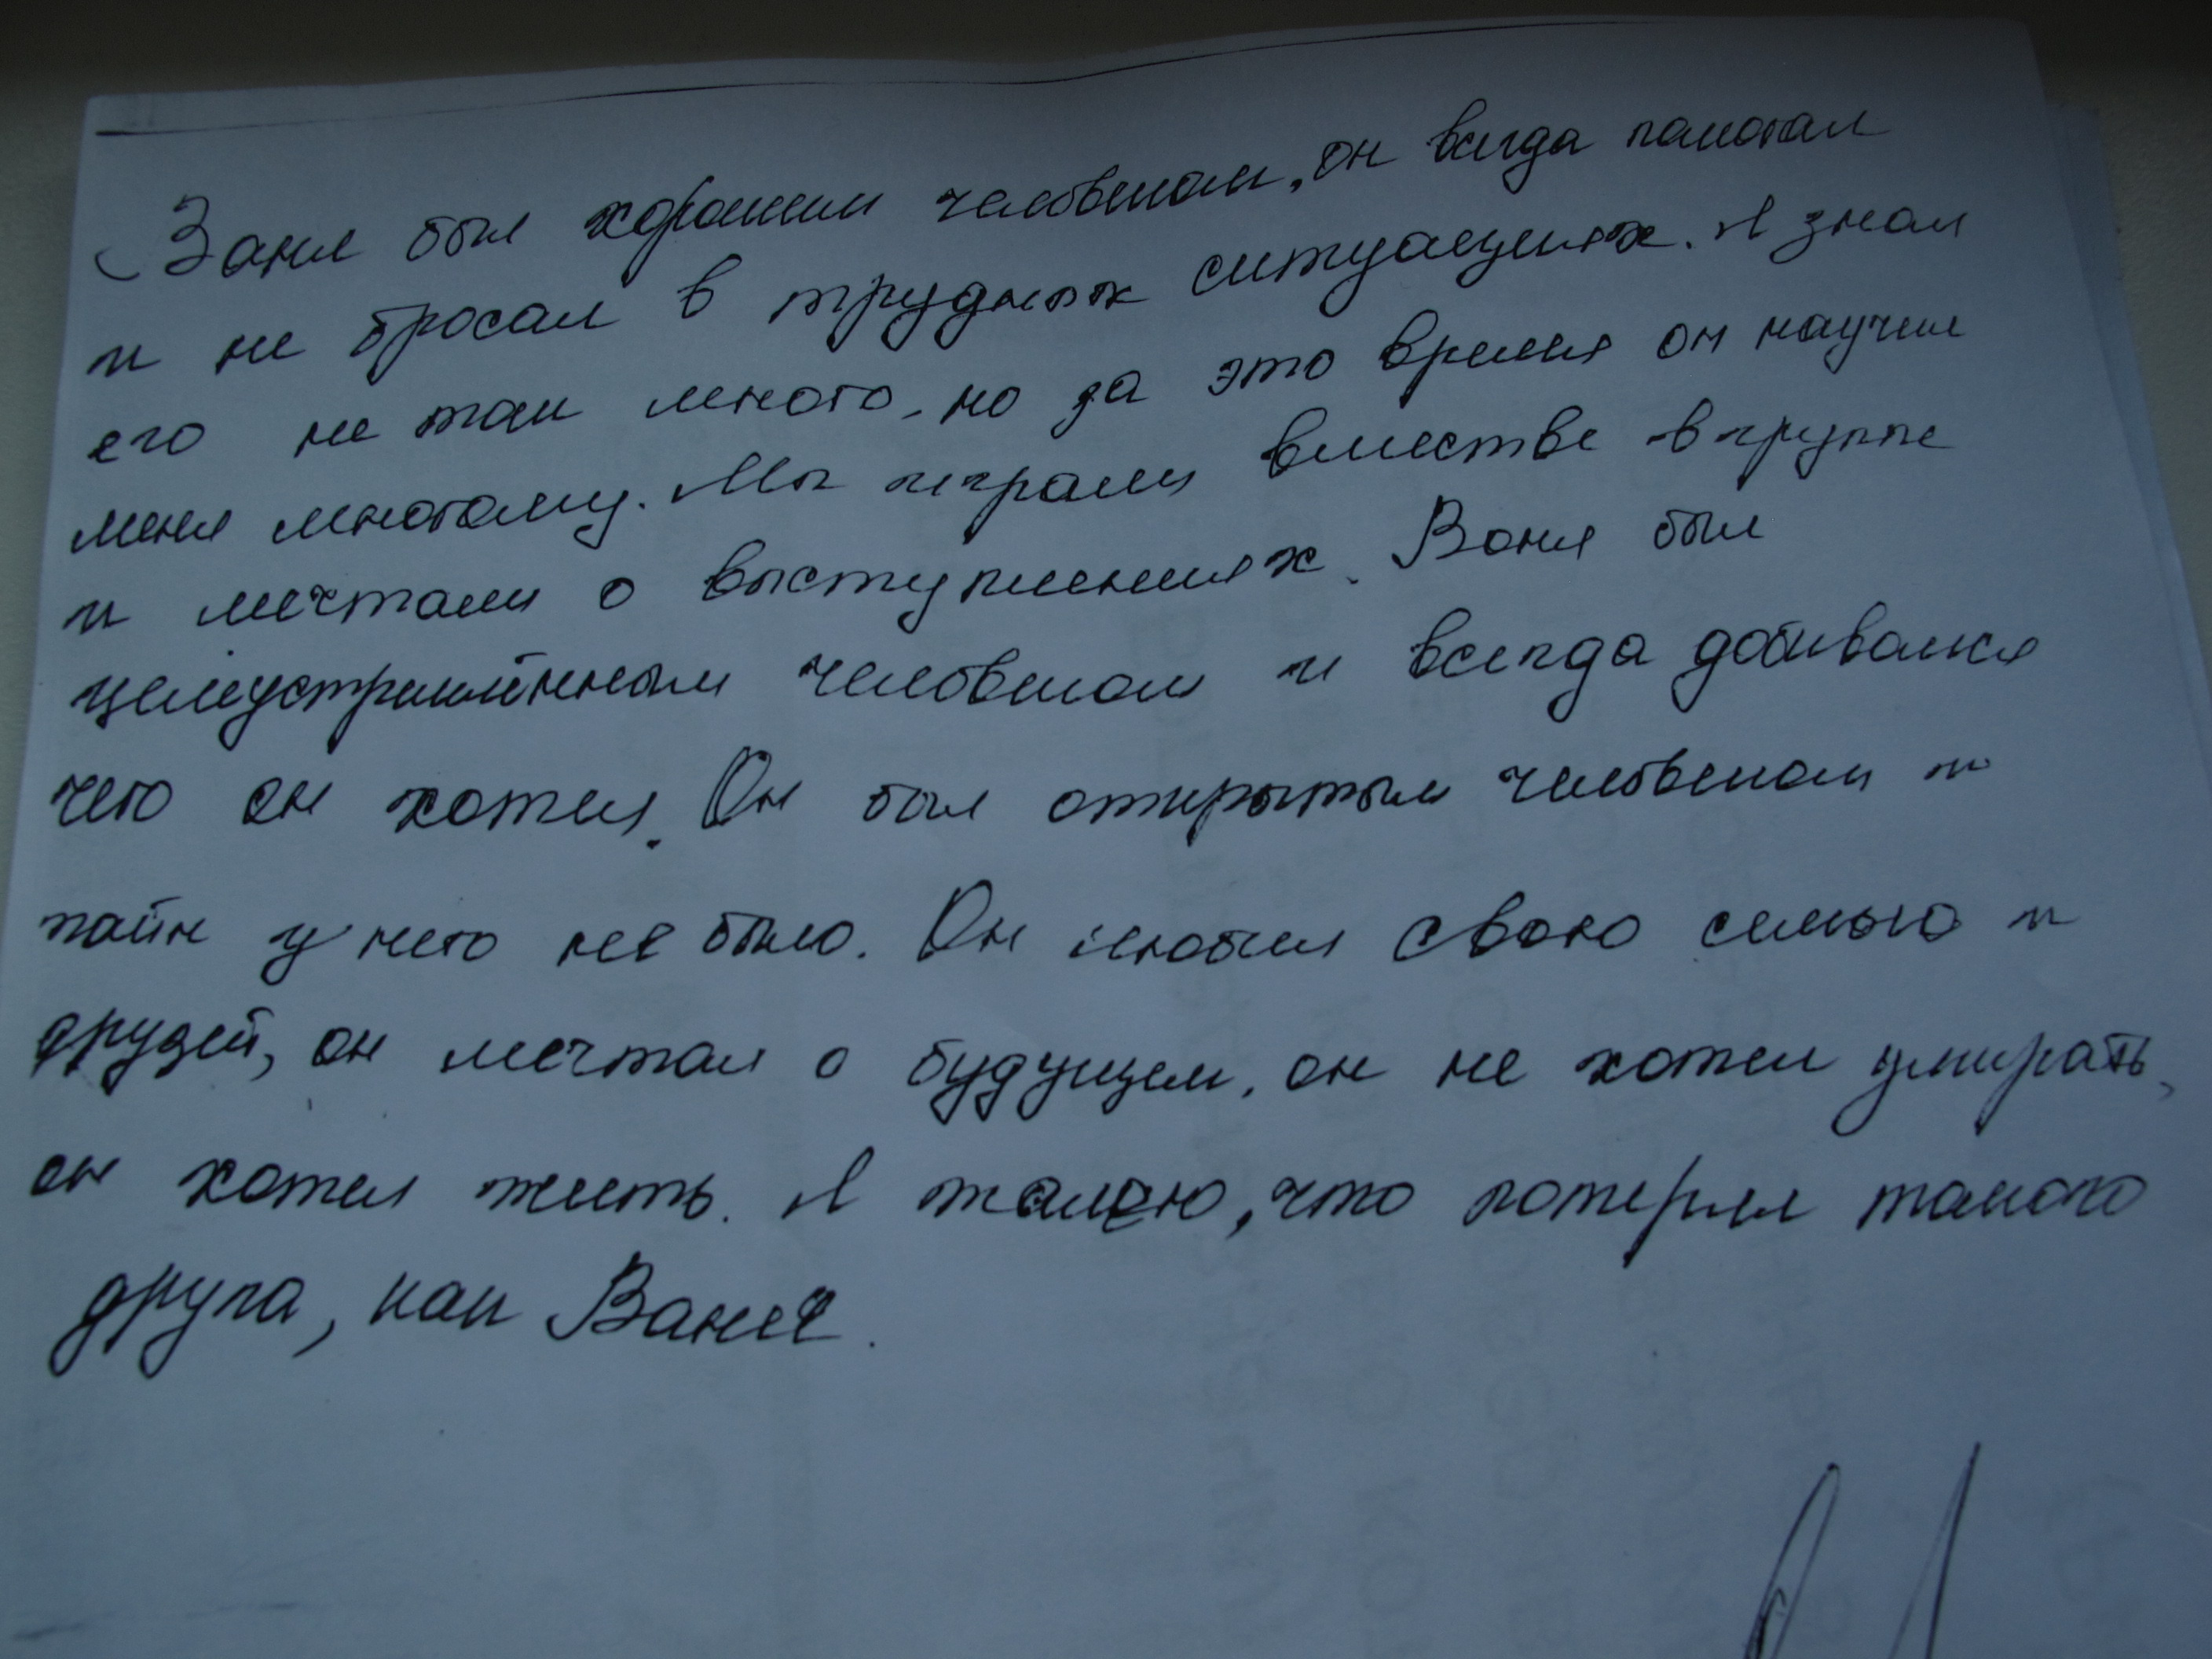 Ваня был хорошим человеком, он всегда помогал
и не бросал в трудных ситуациях. Я знал
его не так много, но за это время он научил
меня многому. Мы играли вместве в группе
и мечтали о выступлениях. Ваня был
целеустремлённым человеком и всегда добивался
чего он хотел. Он был открытым человеком и
тайн у него не было. Он любил свою семью и
друзей, он мечтал о будущем, он не хотел умирать,
он хотел жить. Я жалею, что потерял такого
друга, как Ваня.